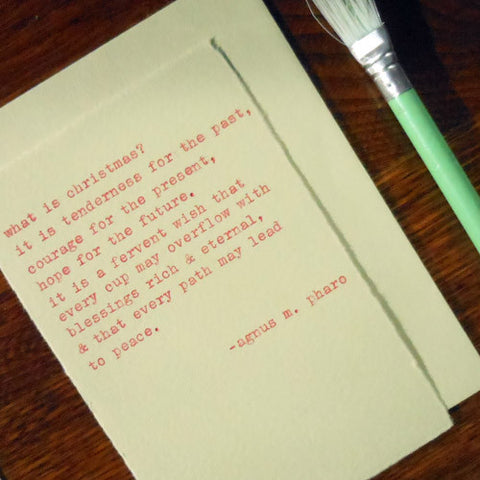 what is christmas?
it is tenderness for the past,
courage for the present,
hope for the future.
it is a fervent wish that
every cup may overflow with
blessings rich & eternal,
& that every path may lead
to peace.
-agnus m. pharo